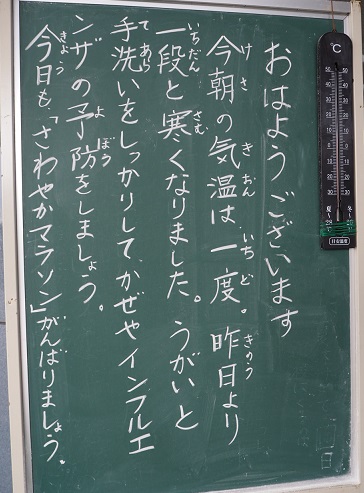 おはようございます
今朝の気温は、一度。昨日より
一段と寒くなりました。うがいと
手洗いをしっかりして、かぜやインフルエ
ンザの予防をしましょう。
今日も、「さわやかマラソン」がんばりましょう。
けさ
きおん
いちど
きのう
いちだん
さむ
てあら
よぼう
きょう
℃
50 50
40 40
30 30
20 20
10 10
0 0
10 10
20 20
30 30
夏 冬
日